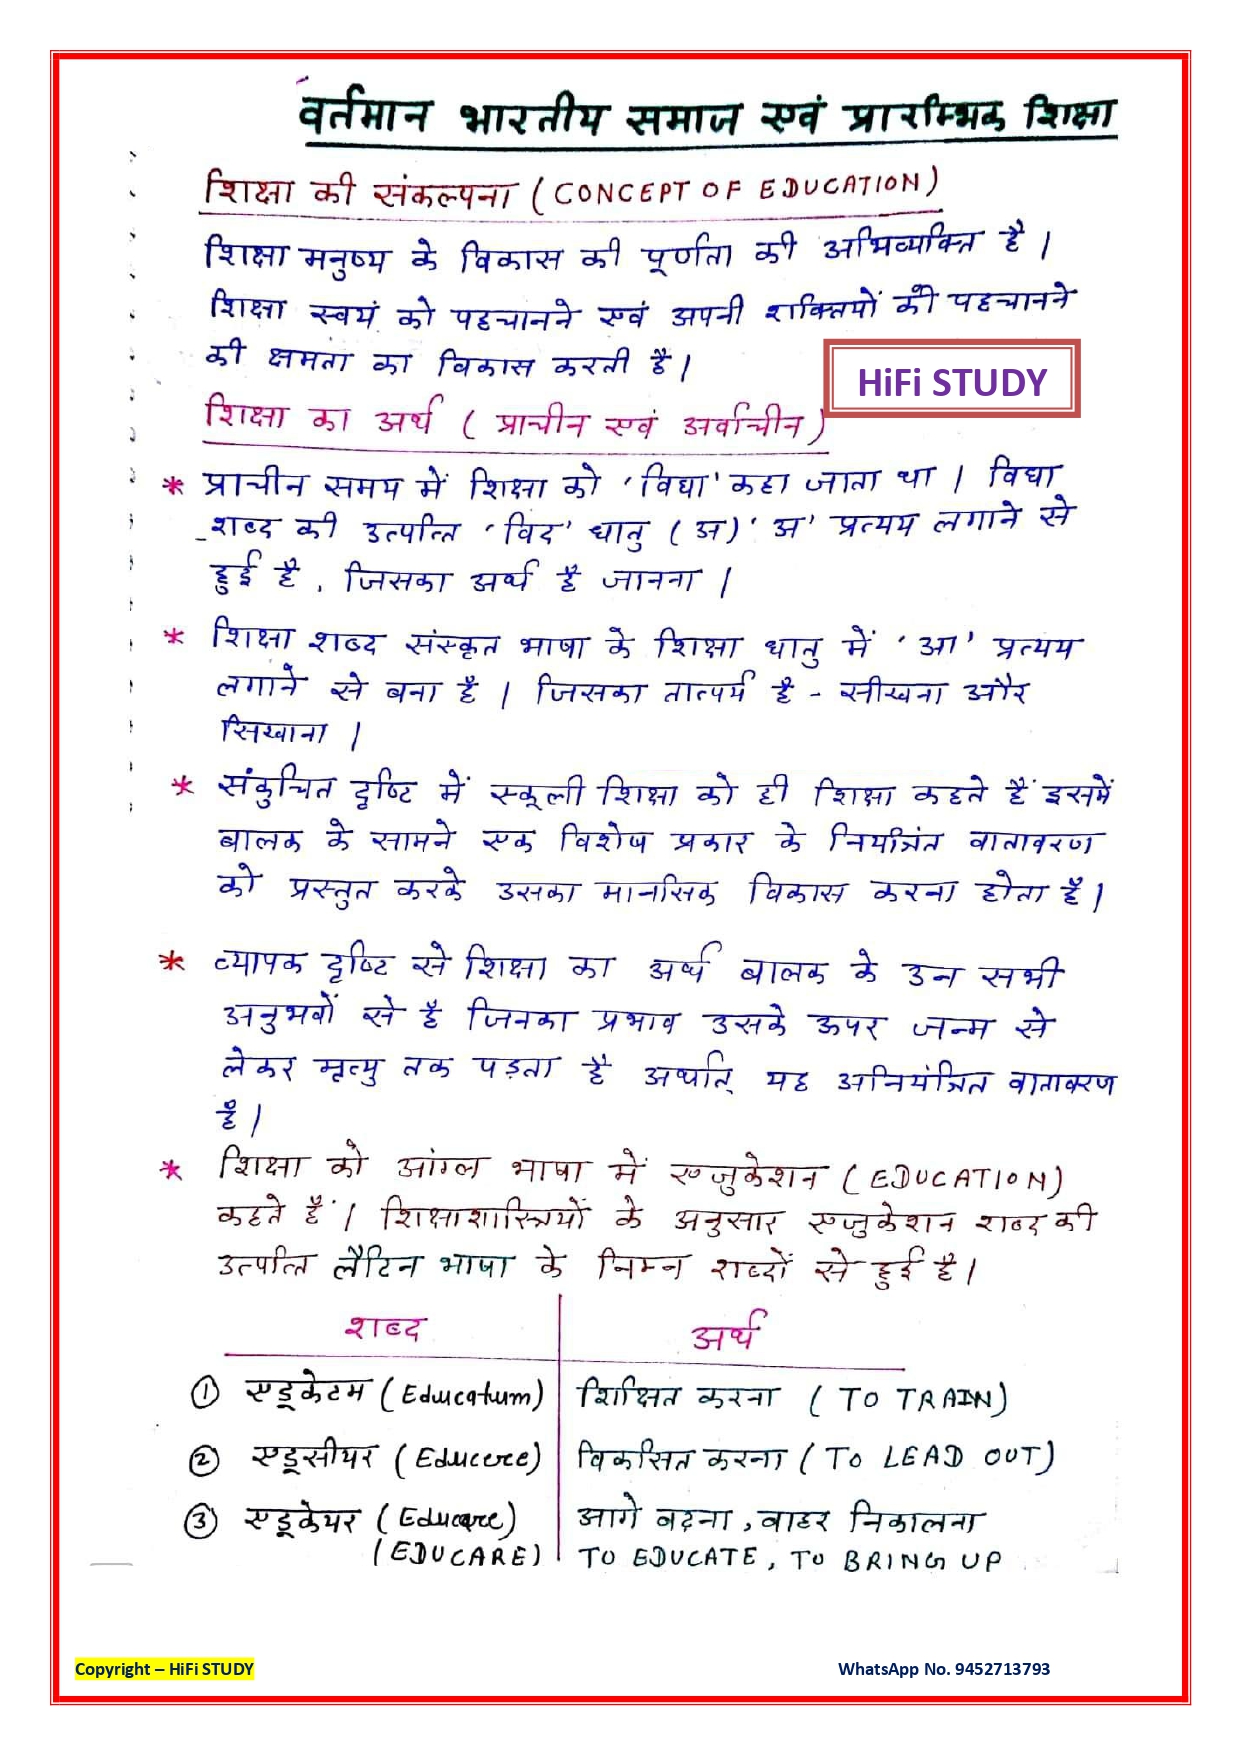 वर्तमान भारतीय समाज एवं प्रारम्भिक शिक्षा
शिक्षा की संकल्पना (CONCEPT OF EDUCATION)
शिक्षा मनुष्य के विकास की पूर्णता की अभिव्यक्ति है।
शिक्षा स्वयं को पहचानने एवं अपनी शक्तियों को पहचानने
की क्षमता का विकास करती है।
HiFi STUDY
शिक्षा का अर्थ (प्राचीन एवं अर्वाचीन)
* प्राचीन समय में शिक्षा को 'विद्या' कहा जाता था। विद्या
शब्द की उत्पत्ति 'विद' धातु (अ) 'अ' प्रत्यय लगाने से
हुई है, जिसका अर्थ है जानना।
* शिक्षा शब्द संस्कृत भाषा के शिक्षा धातु में 'आ' प्रत्यय
लगाने से बना है। जिसका तात्पर्य है - सीखना और
सिखाना।
* संकुचित दृष्टि में स्कूली शिक्षा को ही शिक्षा कहते हैं इसमें
बालक के सामने एक विशेष प्रकार के नियंत्रित वातावरण
को प्रस्तुत करके उसका मानसिक विकास करना होता है।
* व्यापक दृष्टि से शिक्षा का अर्थ बालक के उन सभी
अनुभवों से है जिनका प्रभाव उसके ऊपर जन्म से
लेकर मृत्यु तक पड़ता है अर्थात् यह अनियंत्रित वातावरण
है।
* शिक्षा को आंग्ल भाषा में एजुकेशन (EDUCATION)
कहते हैं। शिक्षाशास्त्रियों के अनुसार एजुकेशन शब्द की
उत्पत्ति लैटिन भाषा के निम्न शब्दों से हुई है।
शब्द अर्थ
① एडूकेटम (Educatum) शिक्षित करना (TO TRAIN)
② एडूसीयर (Educere) विकसित करना (TO LEAD OUT)
③ एडूकेयर (Educare) आगे बढ़ना, बाहर निकालना
(EDUCARE) TO EDUCATE, TO BRING UP
Copyright – HiFi STUDY WhatsApp No. 9452713793